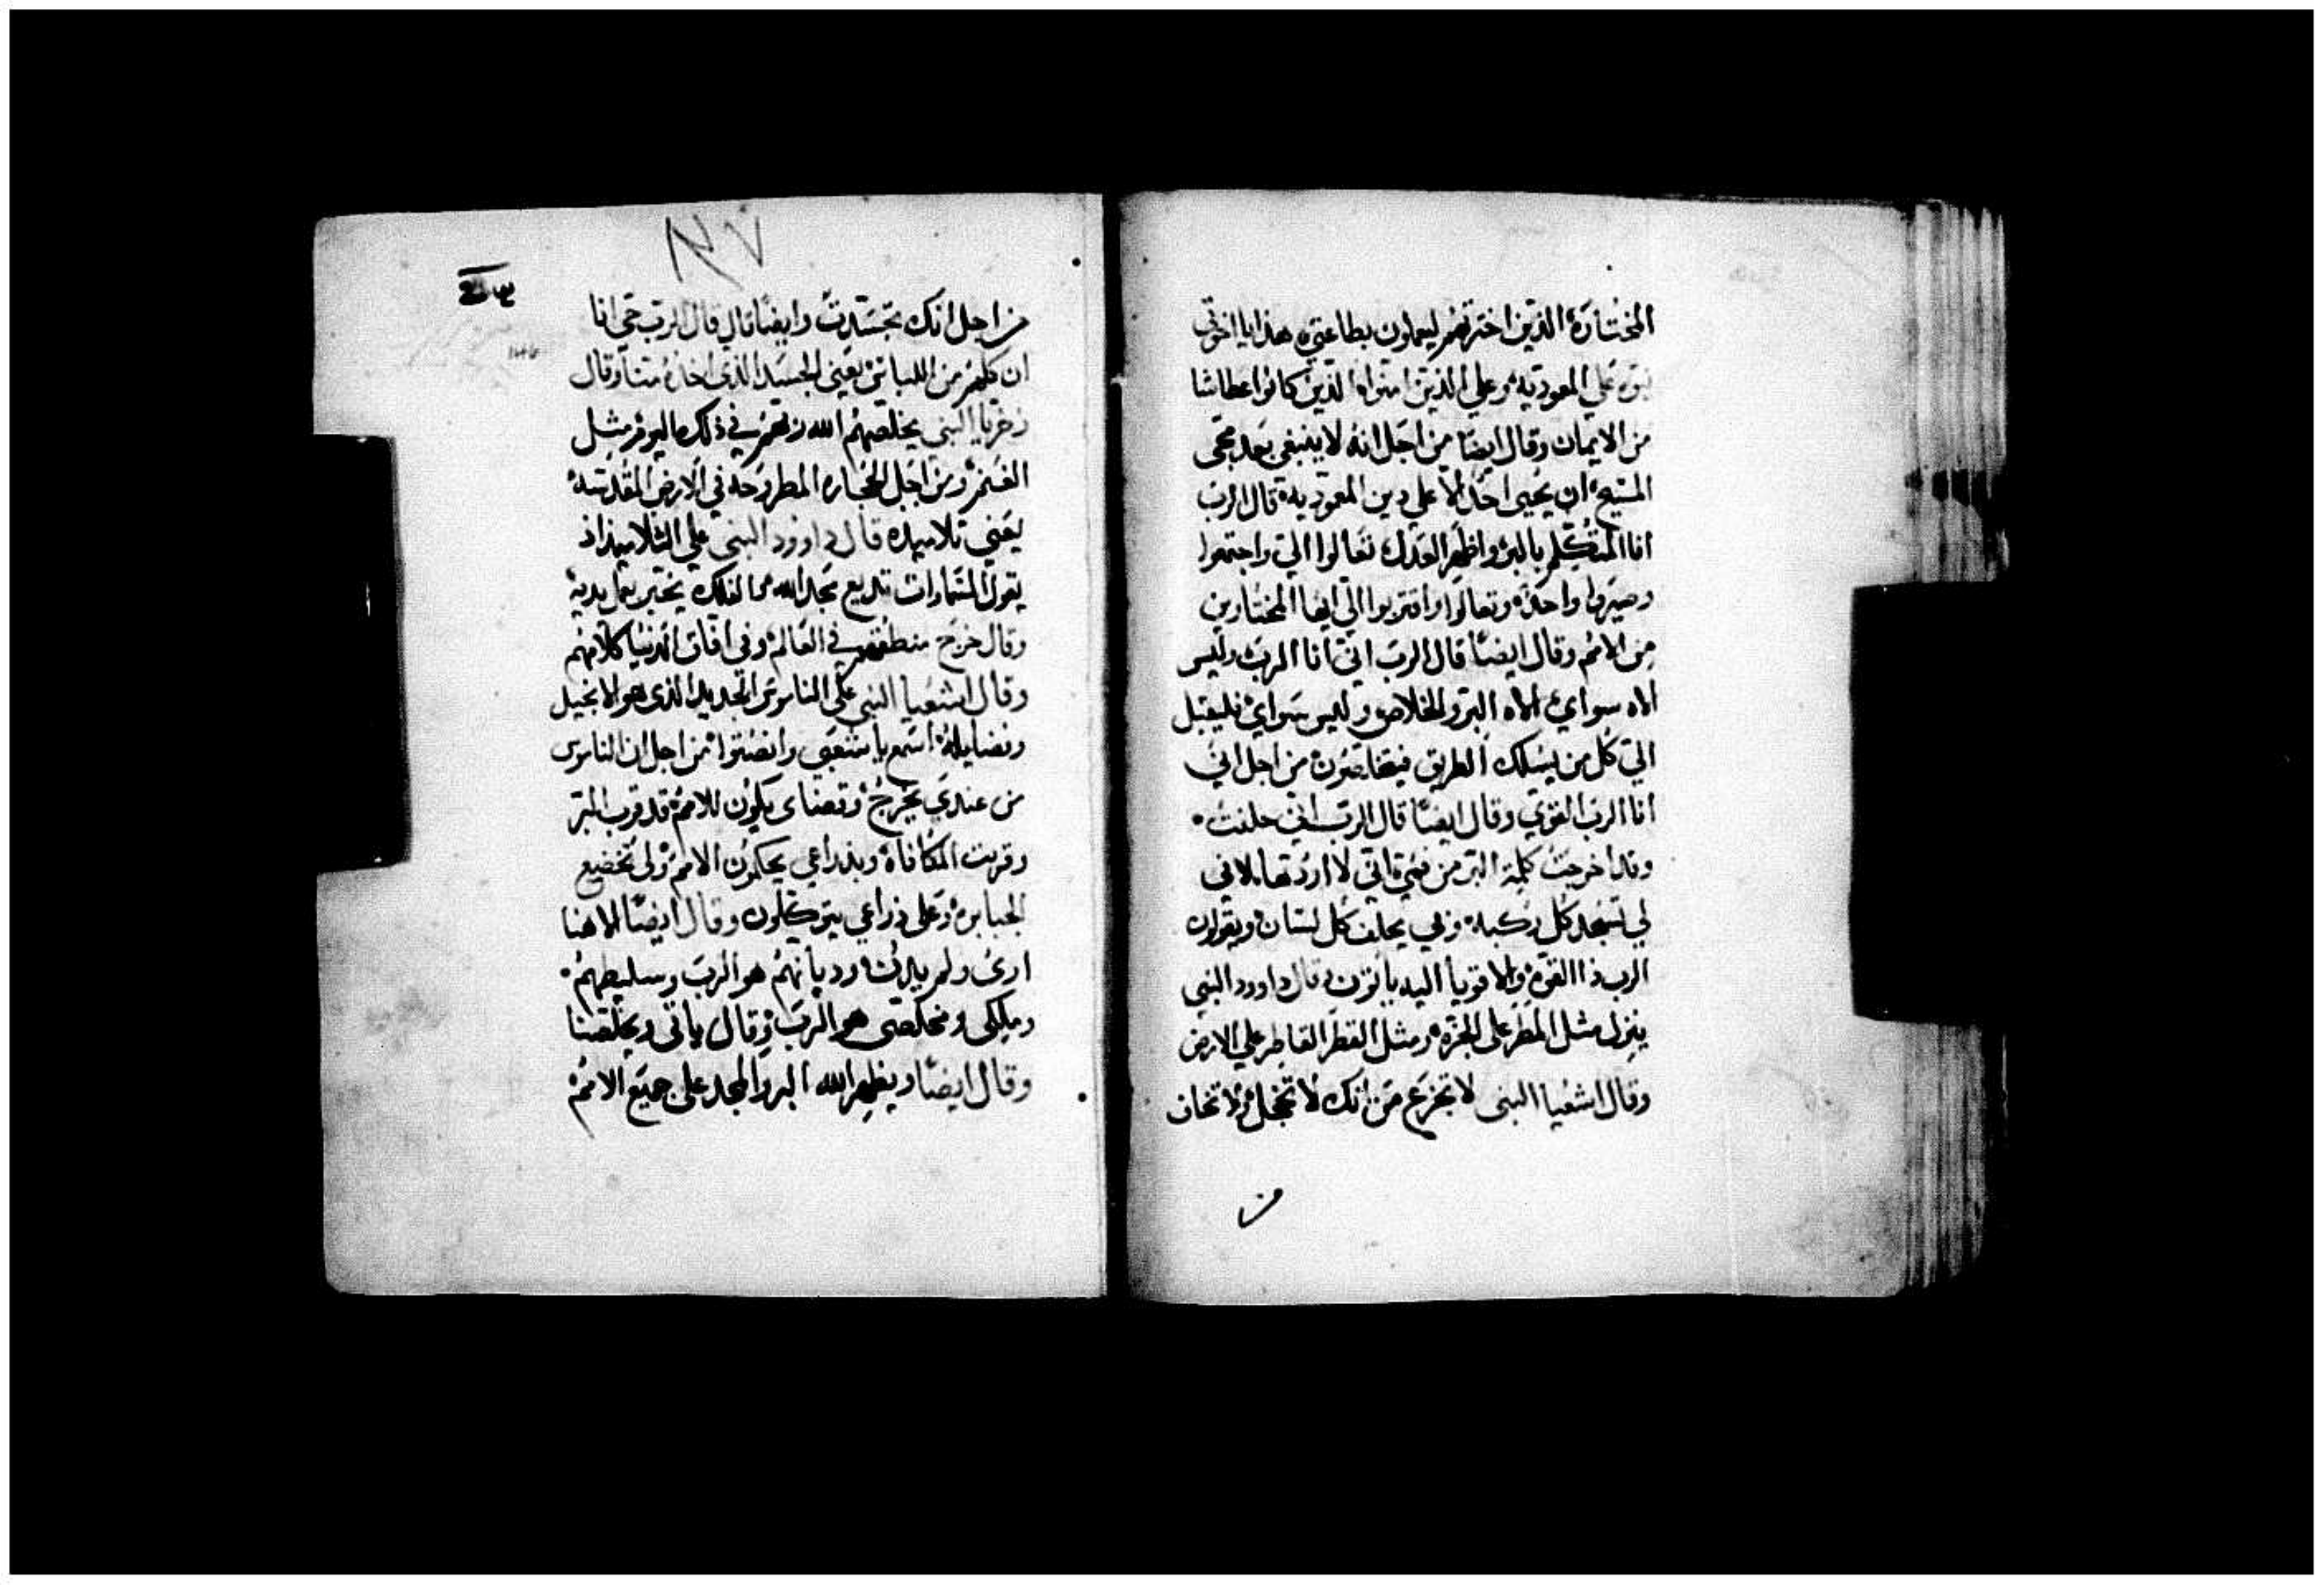 المختارة الذين اخترتهم ليعملون بطاعتي هذا يا اخوتي
نبوة علي المعودية وعلي الذين امنوا الذين كانوا عطاشا
من الايمان وقال ايضا من اجل انه لا ينبغي بعد مجى
المسيح ان يحيى احد الا علي دين المعودية قال الرب
انا المتكلم بالبر واظهر العدل تعالوا الي واجتمعوا
وصيروا واحدة وتعالوا واقتربوا الي ايها المختارين
من الامم وقال ايضا قال الرب اني انا الرب وليس
الاه سواي الاه البر والخلاص وليس سواي فليقبل
الي كل من يسلك الطريق من اجل اني
انا الرب القوي وقال ايضا قال الرب اني حلفت
وقد اخرجت كلمة البر من فمي اني لا اردتها لاني
لي تسجد كل ركبة وبي يحلف كل لسان ويقولون
الرب ذا القوة والاقويا اليه ياتون قال داوود النبي
ينزل مثل المطر على الجزة ومثل القطر القاطر علي الارض
وقال اشعيا النبى لا تجزع من انك لا تخجل ولا تخاف
من
١٣٧
من اجل انك تجسدت وايضا قال قال الرب حي انا
ان كلهم من اللباتي يعني الجسد الذى اخذه منا وقال
زخريا النبي يخلصهم الله ربهم في ذلك اليوم مثل
الغنم ومن اجل الحجاره المطروحه في الارض المقدسة
يعني تلاميده قال داوود النبى علي التلاميذ اذ
يقول السماوات تديع مجد الله الفلك يخبر بعمل يديه
وقال خرج منطقهم في العالم وفى افاق الدنيا كلامهم
وقال اشعيا النبي علي الناموس الجديد الذى هو الانجيل
وفضايله اسمع يا شعبى وانصتوا من اجل ان الناموس
من عندي يخرج وقضاى يكون للامم قد قرب البر
وقربت المكافاة وبذراعي يحكمون الامم ولى تخضع
الجبابرة وعلى ذراعي يتوكلون وقال ايضا الاهنا
ارى ولم هو الرب
وملكى ومخلصى هو الرب وقال ياتى ويخلصنا
وقال ايضا ويظهر الله البر والمجد على جميع الامم